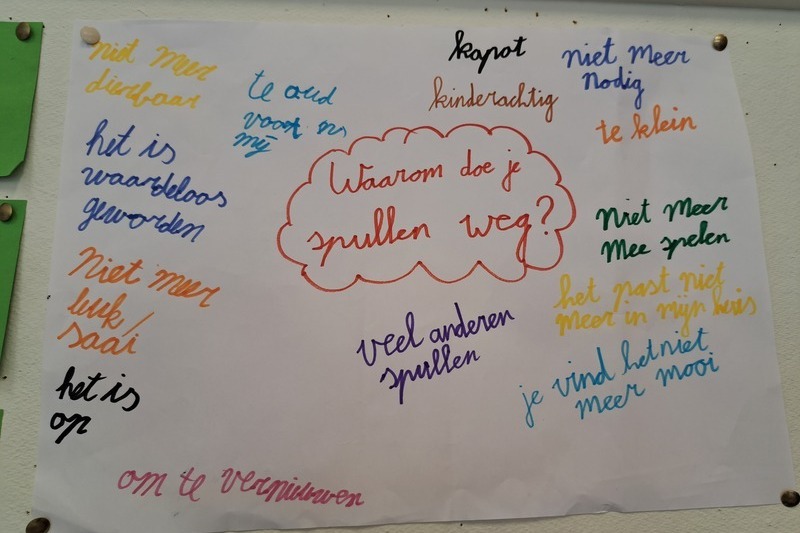 Waarom doe je
spullen weg?
niet meer
dierbaar
te oud
voor
mij
kapot
kinderachtig
niet meer
nodig
te klein
het is
waardeloos
geworden
Niet meer
mee spelen
Niet meer
leuk/
saai
het past niet
meer in mijn huis
veel anderen
spullen
je vind het niet
meer mooi
het is
op
om te vernieuwen